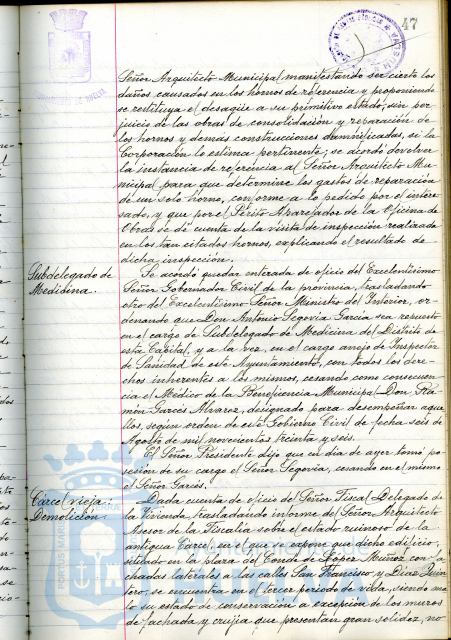 47
Señor Arquitecto Municipal manifestando ser cierto los
daños causados en los hornos de referencia y proponiendo
se restituya el desagüe a su primitivo estado, sin per-
juicio de las obras de consolidación y reparación de
los hornos y demás construcciones damnificadas, si la
Corporación lo estima pertinente; se acordó devolver
la instancia de referencia al Señor Arquitecto Mu-
nicipal, para que determine los gastos de reparación
de un solo horno, conforme a lo pedido por el intere-
sado, y que por el Perito Aparejador de la Oficina de
Obras se dé cuenta de la visita de inspección realizada
en los tan citados hornos, explicando el resultado de
dicha inspección.
Subdelegado de
Medicina.
Se acordó quedar enterada de oficio del Excelentísimo
Señor Gobernador Civil de la provincia, trasladando
otro del Excelentísimo Señor Ministro del Interior, or-
denando que Don Antonio Segovia García sea repuesto
en el cargo de Subdelegado de Medicina del Distrito de
esta Capital, y a la vez, en el cargo anejo de Inspector
de Sanidad de este Ayuntamiento, con todos los dere-
chos inherentes a los mismos, cesando como consecuen-
cia el Médico de la Beneficencia Municipal Don Ra-
món Garcés Alvarez, designado para desempeñar aque-
llos, según orden de este Gobierno Civil de fecha seis de
Agosto de mil novecientos treinta y seis.
El Señor Presidente dijo que en día de ayer tomó po-
sesión de su cargo el Señor Segovia, cesando en el mismo
el Señor Garcés.
Cárcel vieja:
Demolición.
Dada cuenta de oficio del Señor Fiscal Delegado de
la Vivienda trasladando informe del Señor Arquitecto
Asesor de la Fiscalía sobre el estado ruinoso de la
antigua Cárcel, en el que expone que dicho edificio,
situado en la plaza del Conde de López Muñoz con fa-
chadas laterales a las calles San Francisco y Díaz Quin-
tero, se encuentra en el tercer período de vida, siendo ma-
lo su estado de conservación a excepción de los muros
de fachada y crujía que presentan gran solidez, no